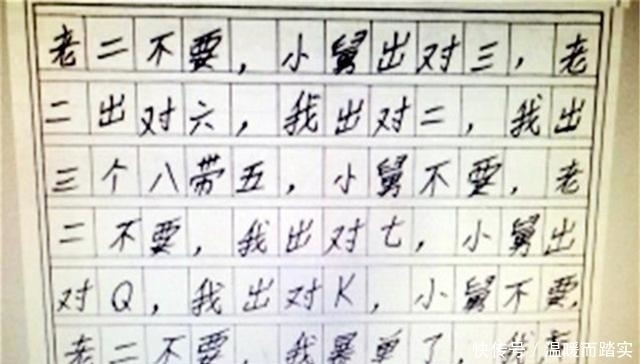 老二不要，小舅出对三，老
二出对六，我出对二，我出
三个八带五，小舅不要，老
二不要，我出对七，小舅出
对Q，我出对K，小舅不要，
老二不要，我暴单了，我
快传号/温暖而踏实